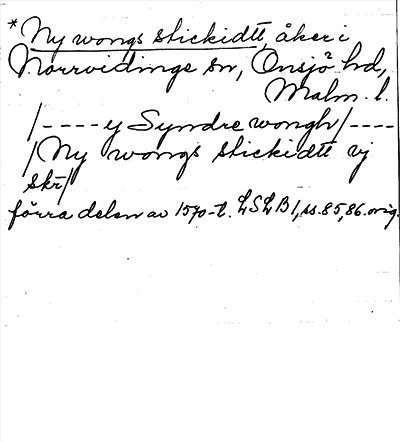 * Ny wongs stickidtt, åker i
Norrvidinge sn, Onsjö hd,
Malm. l.
/---- y Syndre wongh/----
/Ny wongs stickidtt vj
skr/
förra delen av 1570-t. LSLB 1, ss. 85, 86. orig.